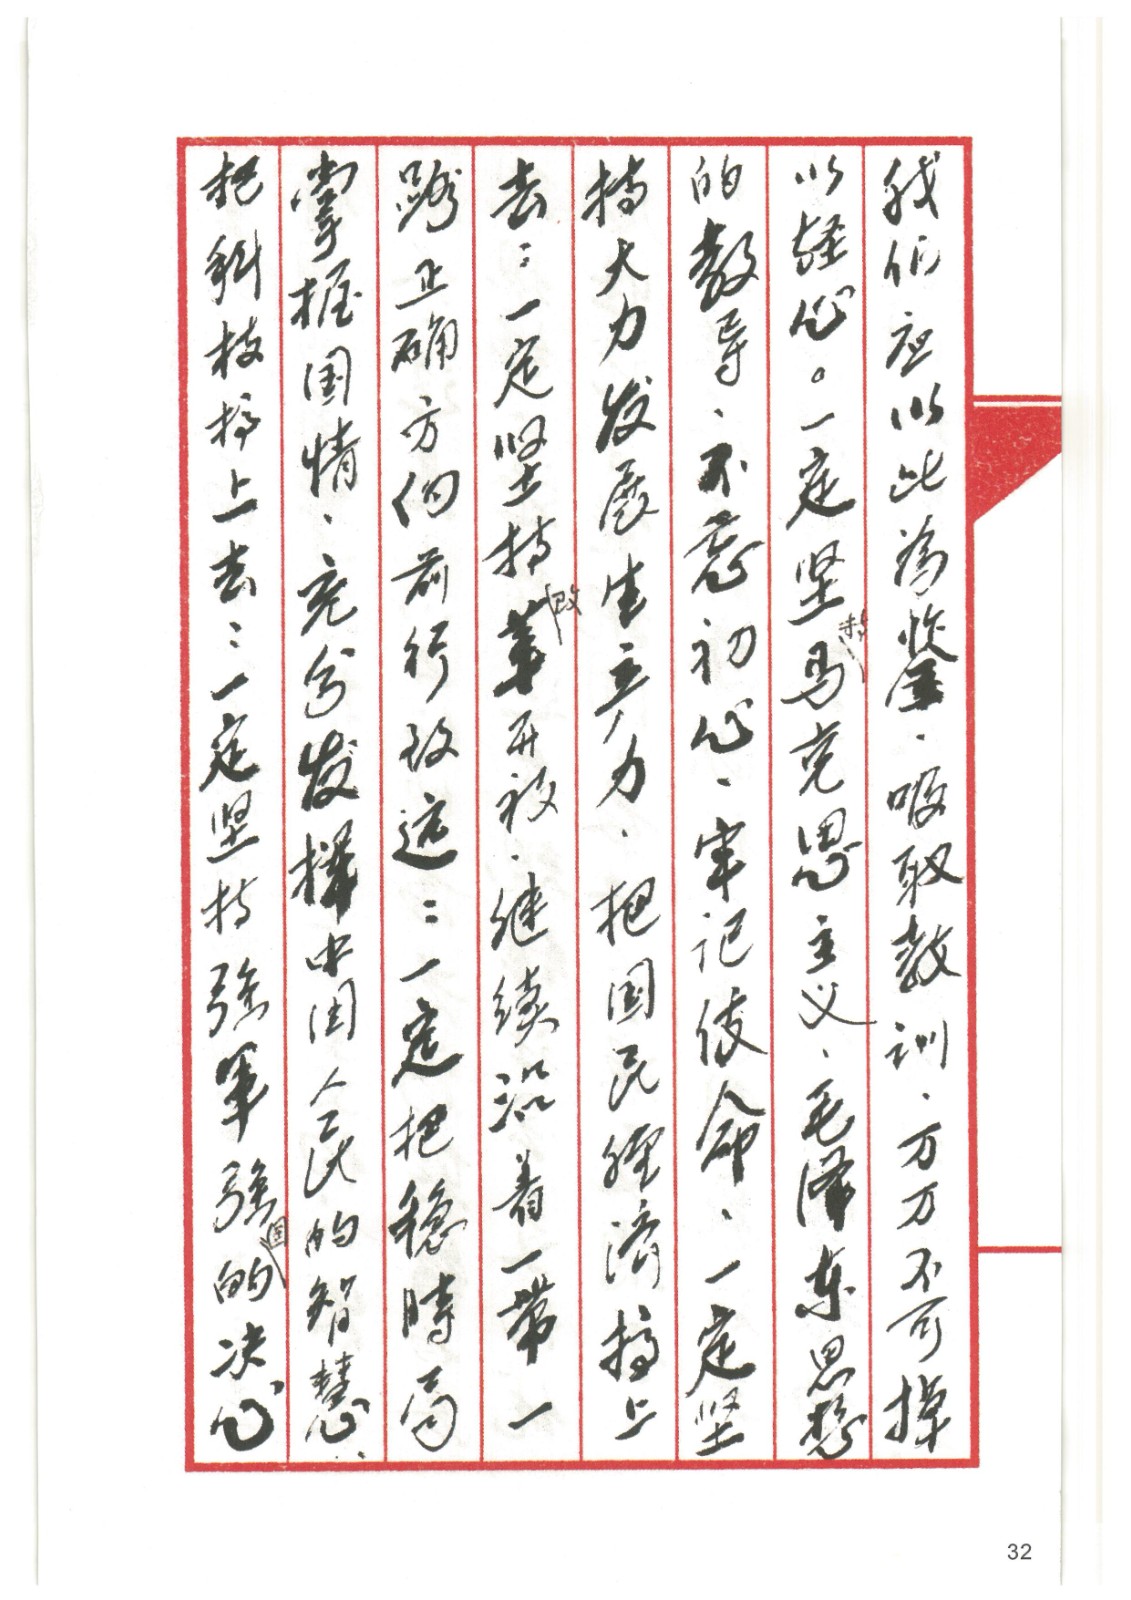 我们应以此为鉴、吸取教训、万万不可掉
以轻心。一定坚持马克思主义、毛泽东思想
的教导、不忘初心、牢记使命、一定坚
持大力发展生产力、把国民经济搞上
去：一定坚持改革开放、继续沿着一带一
路正确方向前行致远：一定把稳時局
掌握国情、充分发挥中国人民的智慧、
把科技搞上去：一定坚持强军强国的决心
32